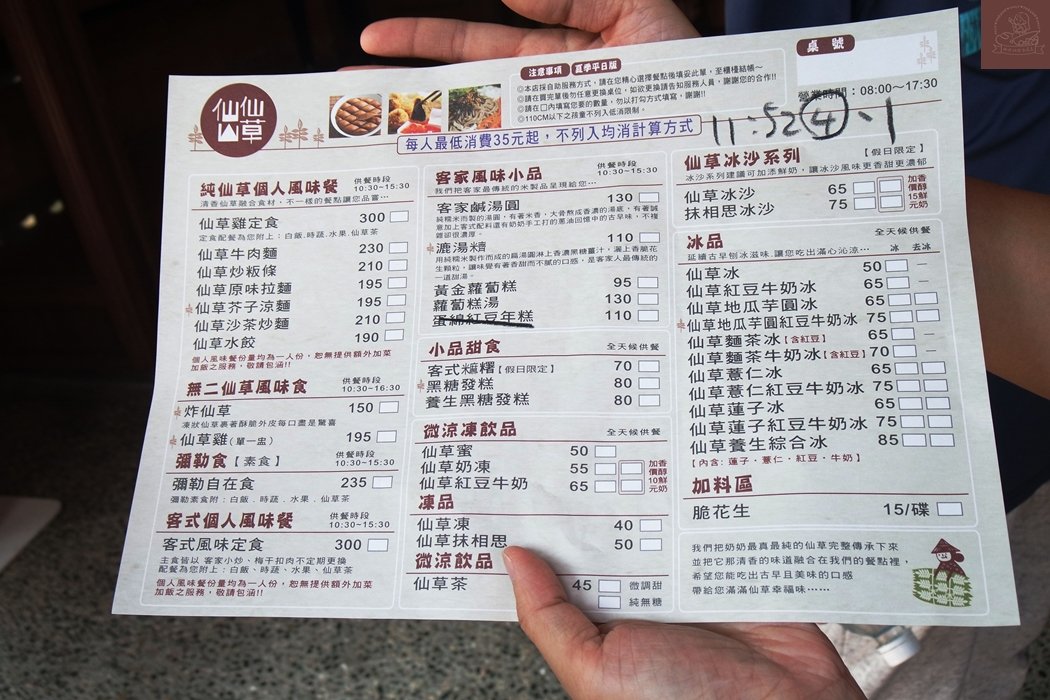 仙仙草
注意事項 夏季平日版
◎本店採自助服務方式，請在您精心選擇餐點後填妥此單，至櫃檯結帳～
◎請在買完單後勿任意更換桌位，如欲更換請告知服務人員，謝謝您的合作!!
◎請在口內填寫您要的數量，勿以打勾方式填寫，謝謝!!
◎110CM以下之孩童不列入低消限制。
每人最低消費35元起，不列入均消計算方式
桌號
營業時間：08:00～17:30
11:52 ④、1
純仙草個人風味餐 供餐時段 10:30~15:30
清香仙草融合食材，不一樣的餐點讓您品嘗…
仙草雞定食 300
定食配餐為您附上：白飯.時蔬.水果.仙草茶
仙草牛肉麵 230
仙草炒粄條 210
仙草原味拉麵 195
仙草芥子涼麵 195
仙草沙茶炒麵 210
仙草水餃 190
個人風味餐份量均為一人份，恕無提供額外加菜
加飯之服務，敬請包涵!!
無二仙草風味食 供餐時段 10:30~16:30
炸仙草 150
凍狀仙草裹著酥脆外皮每口盡是驚喜
仙草雞(單一盅) 195
彌勒食【素食】 供餐時段 10:30~15:30
彌勒自在食 235
彌勒素食附：白飯．時蔬．水果．仙草茶
客式個人風味餐 供餐時段 10:30~15:30
客式風味定食 300
主食皆以 客家小炒、梅干扣肉不定期更換
配餐為您附上：白飯、時蔬、水果、仙草茶
個人風味餐份量均為一人份，恕無提供額外加菜
加飯之服務，敬請包涵!!
客家風味小品 供餐時段 10:30~15:30
我們把客家最傳統的米製品呈現給您…
客家鹹湯圓 130
純糯米而製的湯圓，有著米香，大骨熬成香濃的湯底，有著誠
意加上客式配料還有奶奶手工打的蔥油回憶中的古早味，不複
雜卻很濃厚。
漉湯糍 110
用純糯米製作而成的扁湯圓淋上香濃黑糖薑汁，灑上香脆花
生顆粒，讓味覺有著香甜而不膩的口感，是客家人最傳統的
一道甜湯。
黃金蘿蔔糕 95
蘿蔔糕湯 130
蛋綿紅豆年糕 110
小品甜食 全天候供餐
客式麻糬【假日限定】 70
黑糖發糕 80
養生黑糖發糕 80
微涼凍飲品 全天候供餐
仙草蜜 50
仙草奶凍 55
仙草紅豆牛奶 65
加香價醇10鮮元奶
凍品
仙草凍 40
仙草抹相思 50
微涼飲品
仙草茶 45 微調甜
純無糖
仙草冰沙系列 【假日限定】
冰沙系列建議可加添鮮奶，讓冰沙風味更香甜更濃郁
仙草冰沙 65
抹相思冰沙 75
加香價醇15鮮元奶
冰品 全天候供餐
延續古早刨冰滋味.讓您吃出滿心沁涼… 冰 去冰
仙草冰 50 —
仙草紅豆牛奶冰 65 —
仙草地瓜芋圓冰 65
仙草地瓜芋圓紅豆牛奶冰 75
仙草麵茶冰【含紅豆】 65 —
仙草麵茶牛奶冰【含紅豆】 70 —
仙草薏仁冰 65
仙草薏仁紅豆牛奶冰 75
仙草蓮子冰 65
仙草蓮子紅豆牛奶冰 75
仙草養生綜合冰 85
【內含: 蓮子．薏仁．紅豆．牛奶】
加料區
脆花生 15/碟
我們把奶奶最真最純的仙草完整傳承下來
並把它那清香的味道融合在我們的餐點裡，
希望您能吃出古早且美味的口感
帶給您滿滿仙草幸福味……